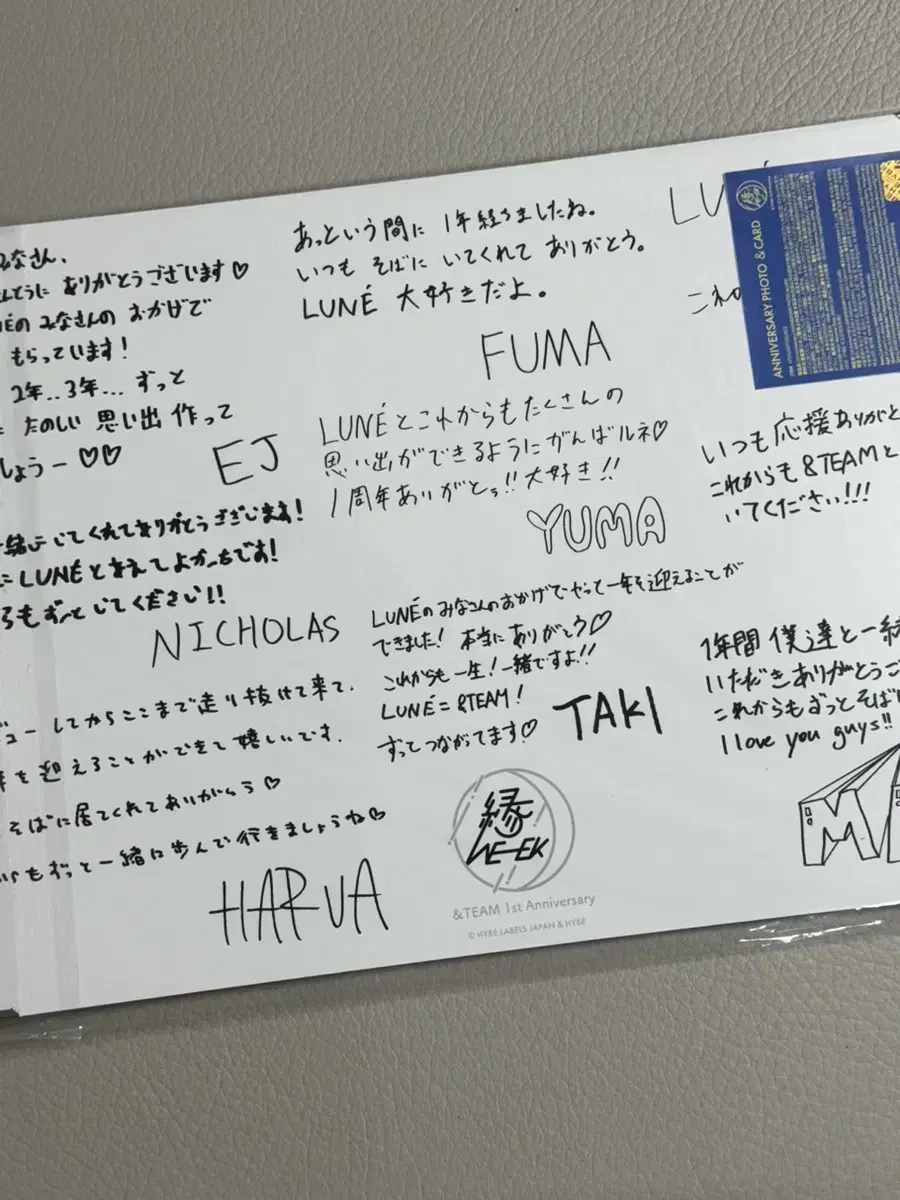 みなさん、
ありがとうございます♡
のみなさんのおかげで
もらっています!
2年..3年...ずっと
たのしい思い出作って
しょうー♡♡
EJ
あっという間に1年経ちましたね。
いつもそばにいてくれてありがとう。
LUNÉ大好きだよ。
FUMA
LUNÉとこれからもたくさんの
思い出ができるようにがんばルネ♡
1周年ありがとぅ!!大好き!!
YUMA
くれてありがとうございます!
LUNÉと会えてよかったです!
もずっといてください!!
NICHOLAS
LUNÉのみなさんのおかげでやっと一年を迎えることが
できました!本当にありがとう♡
これからも一生!一緒ですよ!!
LUNÉ=&TEAM!
ずっとつながてます♡
TAKI
ューしてからここまで走り抜けて来て、
を迎えることができて嬉しいです。
そばに居てくれてありがとう♡
もずっと一緒に歩んで行きましょうね♡
HARUA
いつも応援ありがと
これからも&TEAMと
いてください!!!
1年間僕達と一緒
いただきありがとうご
これからもずっとそばに
I love you guys!!
ANNIVERSARY PHOTO & CARD
縁
WE-EK
&TEAM 1st Anniversary
© HYBE LABELS JAPAN & HYBE